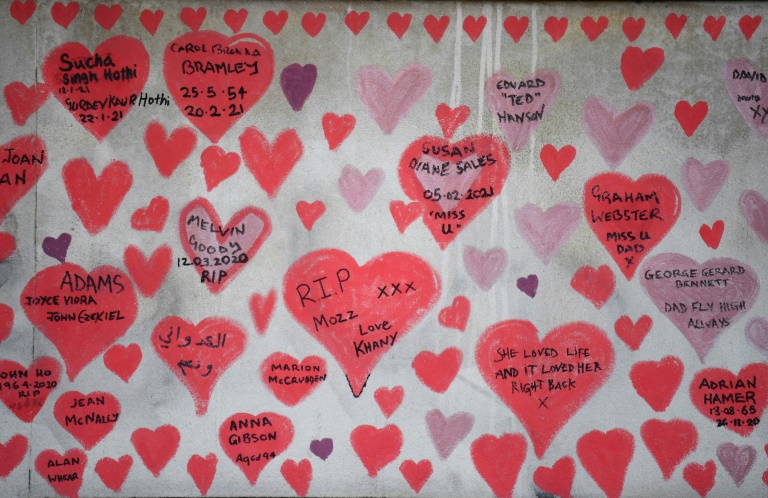 Sucha
Singh Hothi
12.1.21
GURDEV KAUR Hothi
22.1.21
CAROL
BRAMLEY
25.5.54
20.2.21
EDWARD
"TED"
HANSON
DAVID
XY
JOAN
AN
SUSAN
DIANE SALES
05.02.2021
"MISS
U"
GRAHAM
WEBSTER
MISS U
DAD
X
MELVIN
GOODY
12.03.2020
RIP
ADAMS
JOYCE VIORA
JOHN EZEKIEL
R.I.P
XXX
Mozz
Love
KHANY
GEORGE GERARD
BENNETT
DAD FLY HIGH
ALWAYS
ونعم
SHE LOVED LIFE
AND IT LOVED HER
RIGHT BACK
X
MARION
McCAUBDEN
JOHN HO
1964-2020
RIP
JEAN
McNALLY
ADRIAN
HAMER
13.08.65
26.12.20
ANNA
GIBSON
Aged 94
ALAN